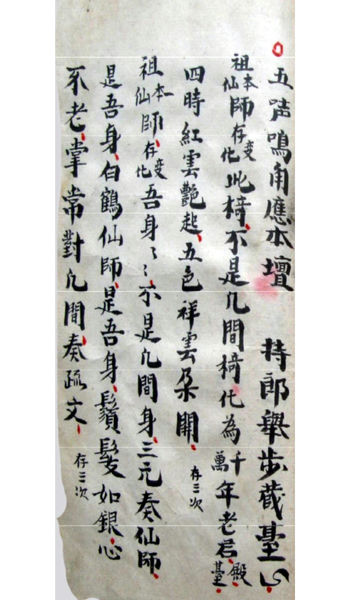 五声鳴角應本壇 持郎舉步蔵臺
祖本仙師存变化此椅不是凡間椅化為千萬年老君殿臺
四時紅雲艷起五色祥雲朵開 存三次
祖本仙師存变化吾身〻不是凡間身三元奏仙師
是吾身白鶴仙師是吾身鬚髮如銀心
不老掌常對凡間奏疏文 存三次